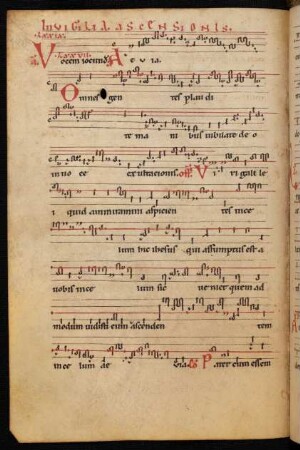 IN VIGILIA ASCENSIONIS.
Vocem iocund A e v ia.
O mnes gen tes plau di
te ma ni bus iubilate de o
in uo ce exultationis. off. V iri gali le
i quid ammiramini aspicien tes in ce
lum hic ihesus qui assumptus est a
uobis in ce lum sic ueniet quem ad
modum uidistis eum ascenden tem
in ce lum alle P ater cum essem